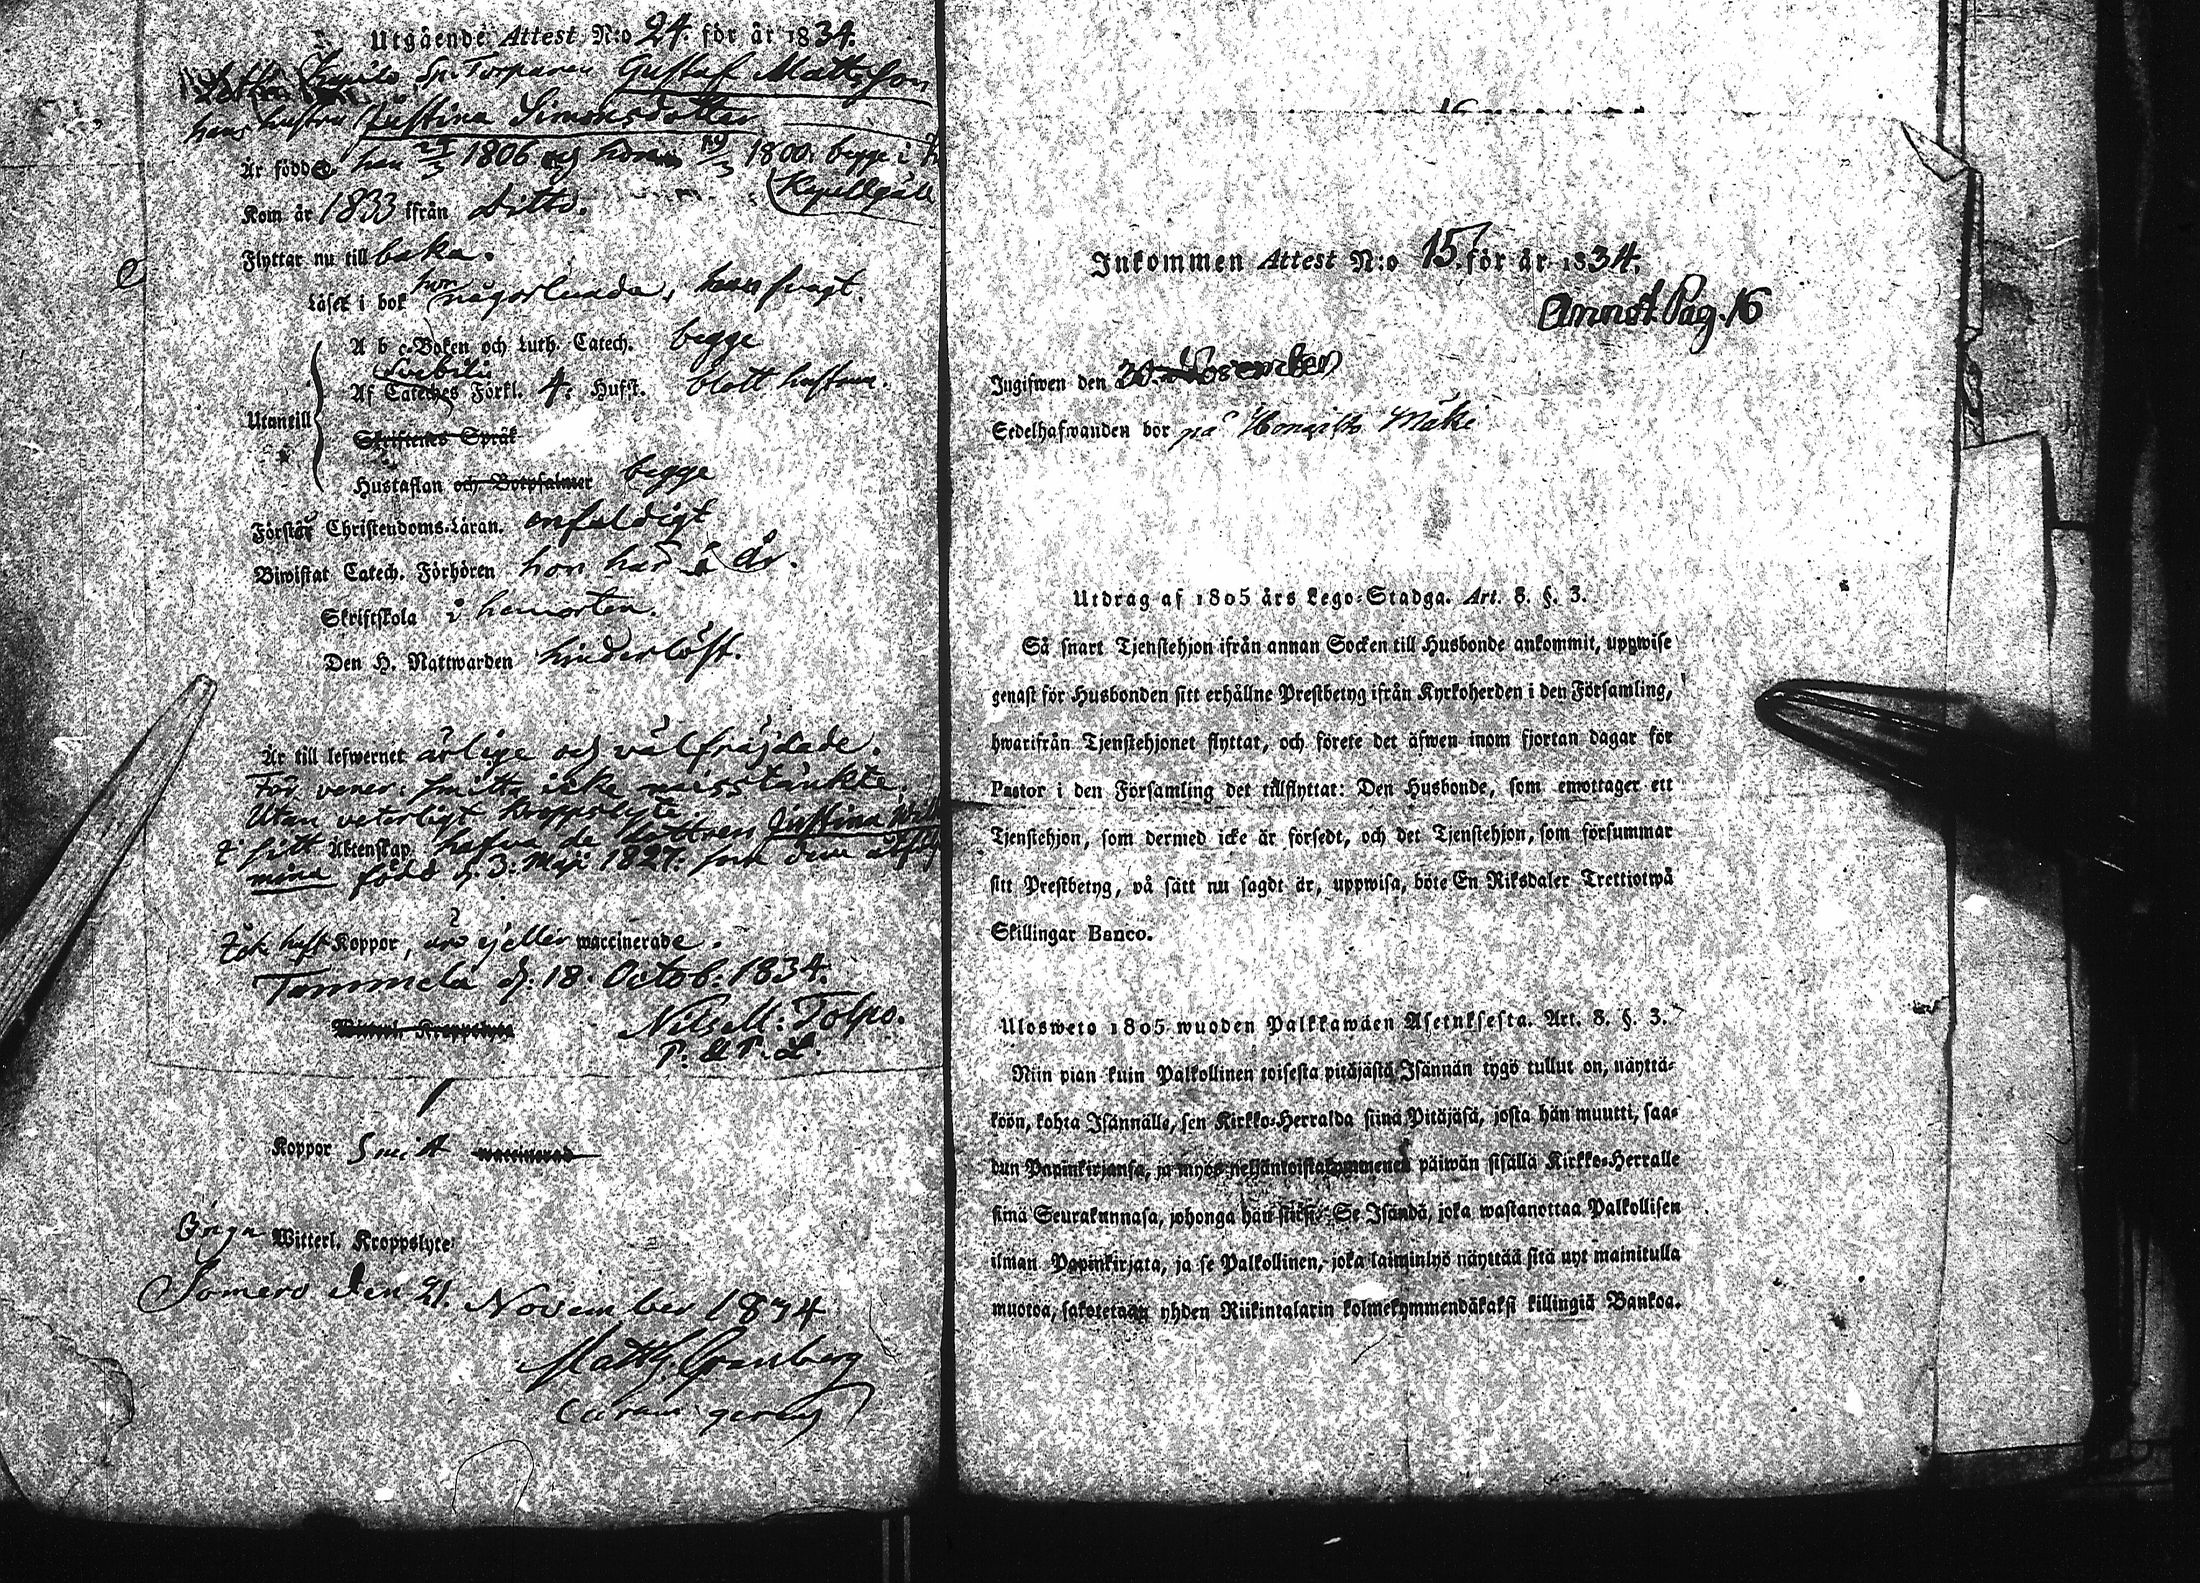 Utgående Attest N:o 24. för år 1834.
Torparen Gustaf Mattsson
hans hustru Justina Simonsdotter
Är födde han 24/3 1806 och hon 19/3 1800. begge i
Kapellgäld
Kom år 1833 ifrån Ditto.
Flyttar nu till baka.
Läser i bok hon någorlunda, han svagt.
A b c-Boken och Luth. Catech. begge
Svebilii
Af Cateches Förkl. 4. Hufst. blott hustrun.
Utantill
Skriftenes Språk
Hustaflan och Botpsalmer begge
Förstår Christendoms-Läran. enfaldigt
Biwistat Catech. Förhören hon har år.
Skriftskola i hemorten.
Den H. Nattwarden hinderlöst.
Är till lefwernet ärlige och välfräjdade.
För vener. smitta icke misstänkte.
Utan veterligt kroppslyte.
I sitt Äktenskap hafva de dottren Justina Wilhel
mina född d. 3. Maji 1827. som dem åtfölj
haft Koppor, äro ej eller waccinerade.
Tammela d. 18. Octob. 1834.
Witterl. Kroppslyte
Nils M. Tolpo.
P. & P. L.
Koppor Smitt waccinerad
Inga Witterl. Kroppslyte
Somero den 21. November 1834
Matth. Granberg
Inkommen Attest N:o 15. för år 1834.
Annot. Pag. 16
Ingifwen den 30. November
Sedelhafwanden bor på Mäki
Utdrag af 1805 års Lego-Stadga. Art. 8. §. 3.
Så snart Tjenstehjon ifrån annan Socken till Husbonde ankommit, uppwise
genast för Husbonden sitt erhållne Prestbetyg ifrån Kyrkoherden i den Församling,
hwarifrån Tjenstehjonet flyttat, och förete det äfwen inom fjortan dagar för
Pastor i den Församling det tillflyttat: Den Husbonde, som emottager ett
Tjenstehjon, som dermed icke är försedt, och det Tjenstehjon, som försummar
sitt Prestbetyg, på sätt nu sagdt är, uppwisa, böte En Riksdaler Trettiotwå
Skillingar Banco.
Ulosweto 1805 wuoden Palkkawäen Asetuksesta. Art. 8. §. 3.
Niin pian kuin Palkollinen toisesta pitäjästä Isännän tygö tullut on, näyttä-
köön, kohta Isännälle, sen Kirkko-Herralda siinä Pitäjäsä, josta hän muutti, saa-
dun Papinkirjansa, ja myös neljäntoistakymmenen päiwän sisällä Kirkko-Herralle
siinä Seurakunnasa, johonga hän siirsi: Se Isändä, joka wastanottaa Palkollisen
ilman Papinkirjata, ja se Palkollinen, joka laiminlyö näyttää sitä nyt mainitulla
muotoa, sakotetaan yhden Riikintalarin kolmekymmendäkaksi killingiä Bankoa.